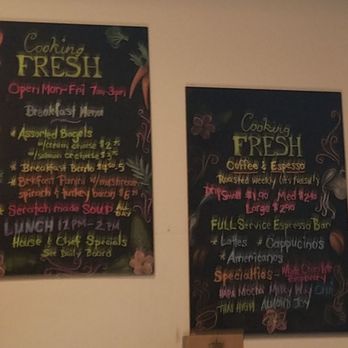 Cooking
FRESH
Open Mon-Fri 7am-3pm
Breakfast Menu
* Assorted Bagels
w/cream cheese $2
w/salmon cheese $3
* Breakfast Burrito $4.5
* Breakfast Panini w/mushroom,
spinach & turkey bacon
Scratch made SOUP ALL DAY
LUNCH 12PM-2PM
House & Chef Specials
See Daily Board
Cooking
FRESH
Coffee & Espresso
Roasted weekly
Small $1.90 Med $2
Large $2
FULL Service Espresso Bar
* Lattes * Cappucinos
* Americanos
Specialties -
Milky Way
Thai High Almond Joy